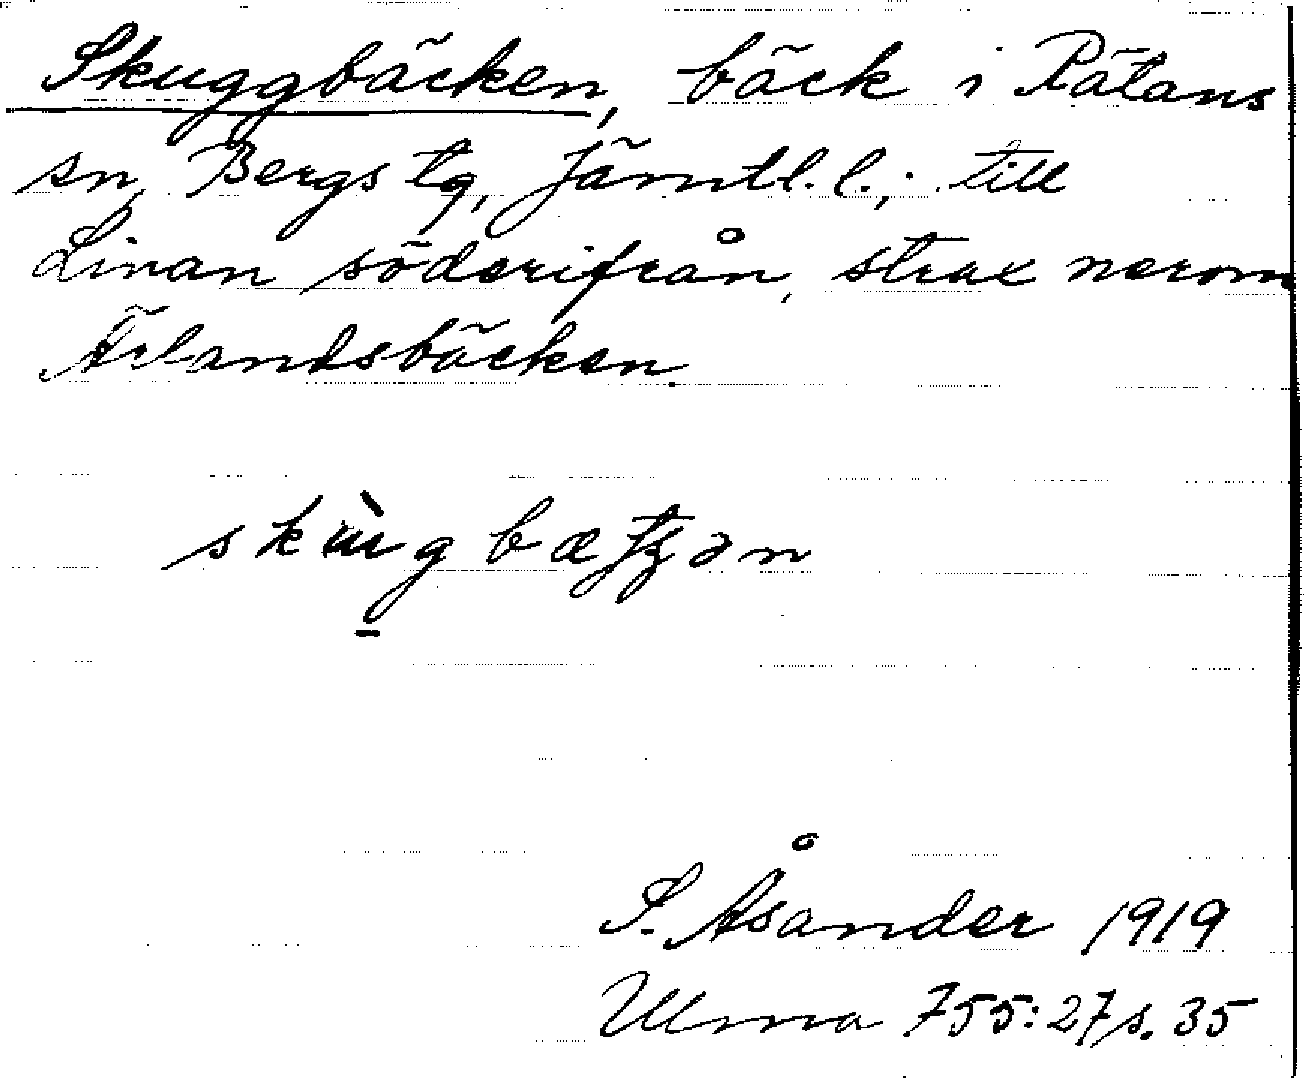 Skuggbäcken, bäck i Rätans
sn, Bergs tg, Jämtl. l.; till
Linan söderifrån, strax nerom
Ärlandsbäcken
S. Åsander 1919
Ulma 755:27 s. 35